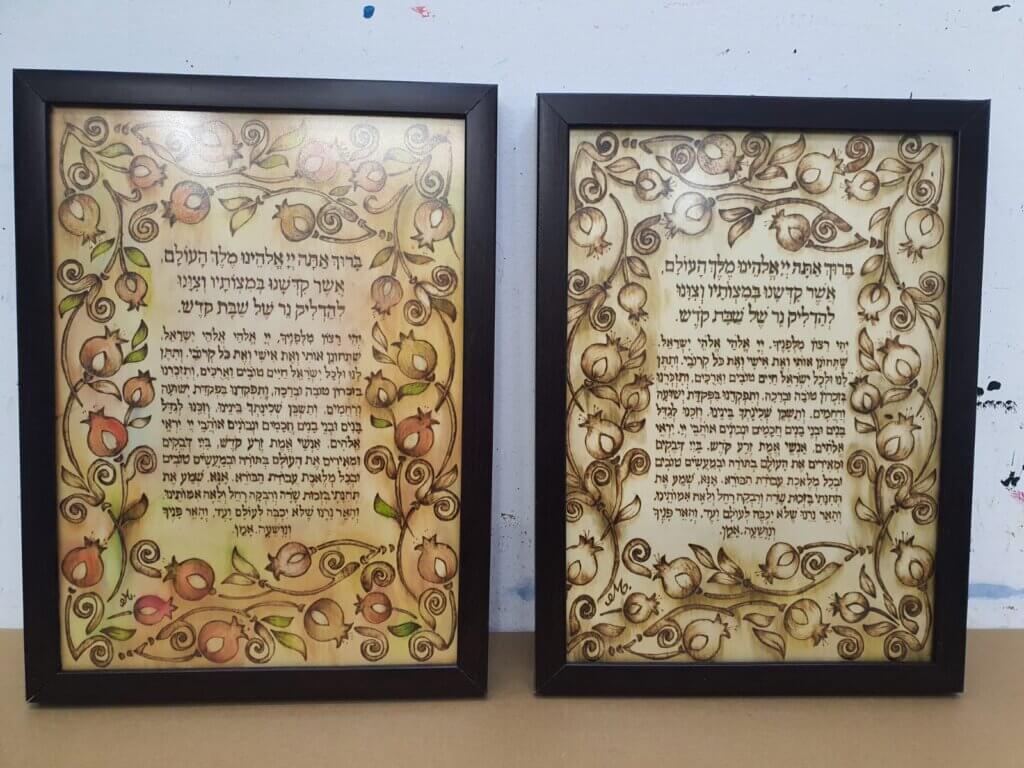 בָּרוּךְ אַתָּה יְיָ אֱלֹהֵינוּ מֶלֶךְ הָעוֹלָם,
אֲשֶׁר קִדְּשָׁנוּ בְּמִצְוֹתָיו וְצִוָּנוּ
לְהַדְלִיק נֵר שֶׁל שַׁבַּת קֹדֶשׁ.
יְהִי רָצוֹן מִלְּפָנֶיךָ, יְיָ אֱלֹהַי אֱלֹהֵי יִשְׂרָאֵל,
שֶׁתְּחוֹנֵן אוֹתִי וְאֶת אִישִׁי וְאֶת כֹּל קְרוֹבַי, וְתִתֵּן
לָנוּ וּלְכֹל יִשְׂרָאֵל חַיִּים טוֹבִים וַאֲרֻכִּים, וְתִזְכְּרֵנוּ
בְּזִכְרוֹן טוֹבָה וּבְרָכָה, וְתִפְקְדֵנוּ בִּפְקֻדַּת יְשׁוּעָה
וְרַחֲמִים, וְתַשְׁכֵּן שְׁכִינָתְךָ בֵּינֵינוּ, וְזַכֵּנוּ לְגַדֵּל
בָּנִים וּבְנֵי בָנִים חֲכָמִים וּנְבוֹנִים אוֹהֲבֵי יְיָ יִרְאֵי
אֱלֹהִים, אַנְשֵׁי אֱמֶת זֶרַע קֹדֶשׁ, בַּיְיָ דְּבֵקִים
וּמְאִירִים אֶת הָעוֹלָם בְּתוֹרָה וּבְמַעֲשִׂים טוֹבִים
וּבְכָל מְלֶאכֶת עֲבוֹדַת הַבּוֹרֵא. אָנָּא, שְׁמַע אֶת
תְּחִנָּתִי בִּזְכוּת שָׂרָה וְרִבְקָה רָחֵל וְלֵאָה אִמּוֹתֵינוּ,
וְהָאֵר נֵרֵנוּ שֶׁלֹּא יִכְבֶּה לְעוֹלָם וָעֶד, וְהָאֵר פָּנֶיךָ
וְנִוָּשֵׁעָה. אָמֵן.
בָּרוּךְ אַתָּה יְיָ אֱלֹהֵינוּ מֶלֶךְ הָעוֹלָם,
אֲשֶׁר קִדְּשָׁנוּ בְּמִצְוֹתָיו וְצִוָּנוּ
לְהַדְלִיק נֵר שֶׁל שַׁבַּת קֹדֶשׁ.
יְהִי רָצוֹן מִלְּפָנֶיךָ, יְיָ אֱלֹהַי אֱלֹהֵי יִשְׂרָאֵל,
שֶׁתְּחוֹנֵן אוֹתִי וְאֶת אִישִׁי וְאֶת כֹּל קְרוֹבַי, וְתִתֵּן
לָנוּ וּלְכֹל יִשְׂרָאֵל חַיִּים טוֹבִים וַאֲרֻכִּים, וְתִזְכְּרֵנוּ
בְּזִכְרוֹן טוֹבָה וּבְרָכָה, וְתִפְקְדֵנוּ בִּפְקֻדַּת יְשׁוּעָה
וְרַחֲמִים, וְתַשְׁכֵּן שְׁכִינָתְךָ בֵּינֵינוּ, וְזַכֵּנוּ לְגַדֵּל
בָּנִים וּבְנֵי בָנִים חֲכָמִים וּנְבוֹנִים אוֹהֲבֵי יְיָ יִרְאֵי
אֱלֹהִים, אַנְשֵׁי אֱמֶת זֶרַע קֹדֶשׁ, בַּיְיָ דְּבֵקִים
וּמְאִירִים אֶת הָעוֹלָם בְּתוֹרָה וּבְמַעֲשִׂים טוֹבִים
וּבְכָל מְלֶאכֶת עֲבוֹדַת הַבּוֹרֵא. אָנָּא, שְׁמַע אֶת
תְּחִנָּתִי בִּזְכוּת שָׂרָה וְרִבְקָה רָחֵל וְלֵאָה אִמּוֹתֵינוּ,
וְהָאֵר נֵרֵנוּ שֶׁלֹּא יִכְבֶּה לְעוֹלָם וָעֶד, וְהָאֵר פָּנֶיךָ
וְנִוָּשֵׁעָה. אָמֵן.